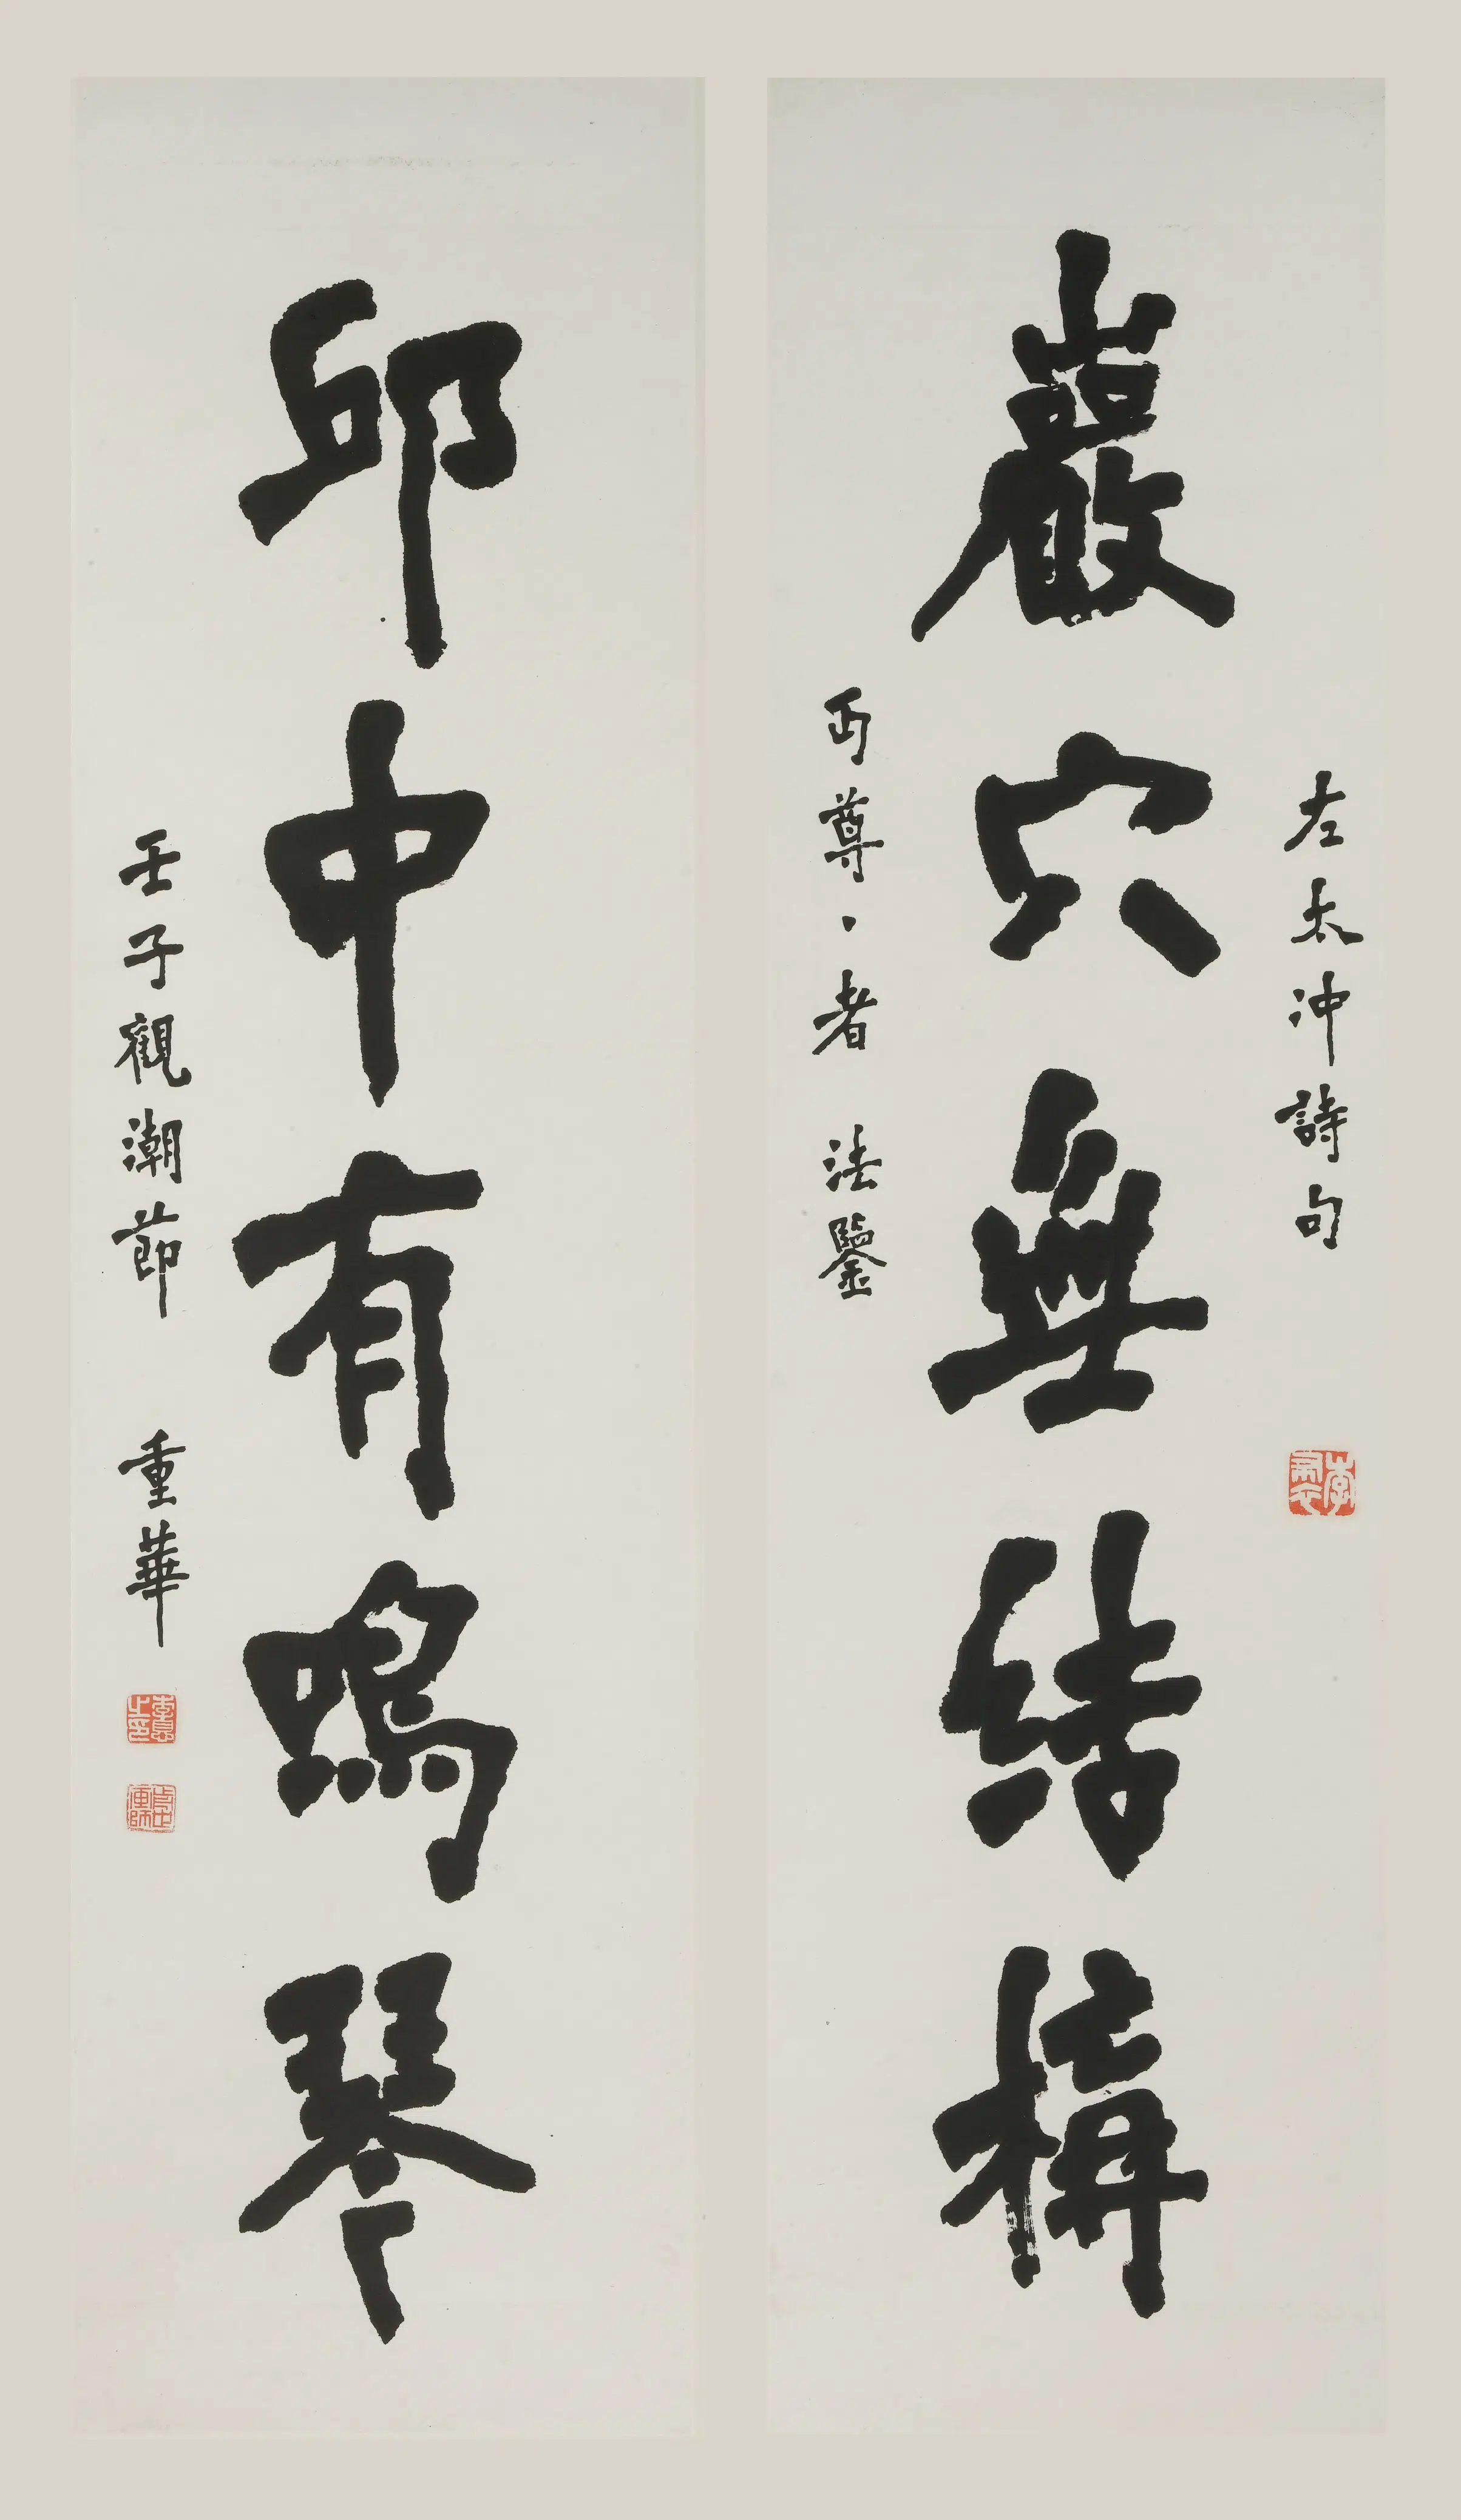 左太沖詩句
巖穴無結構
丏尊、者 法鑒
邱中有鳴琴
壬子觀潮節 重華